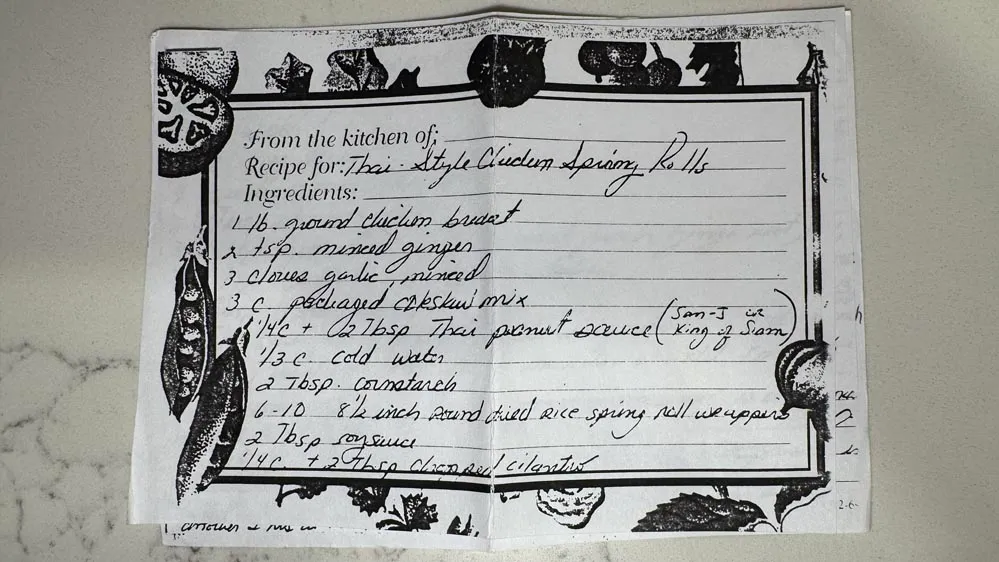 From the kitchen of:
Recipe for: Thai-Style Chicken Spring Rolls
Ingredients:
1 lb. ground chicken breast
2 tsp. minced ginger
3 cloves garlic, minced
3 c packaged coleslaw mix
1/4 c + 2 Tbsp Thai peanut sauce (San-J or King of Siam)
1/3 c. cold water
2 Tbsp. cornstarch
6-10 8½ inch round dried rice spring roll wrappers
2 Tbsp soy sauce
1/4 c. + 2 Tbsp chopped cilantro